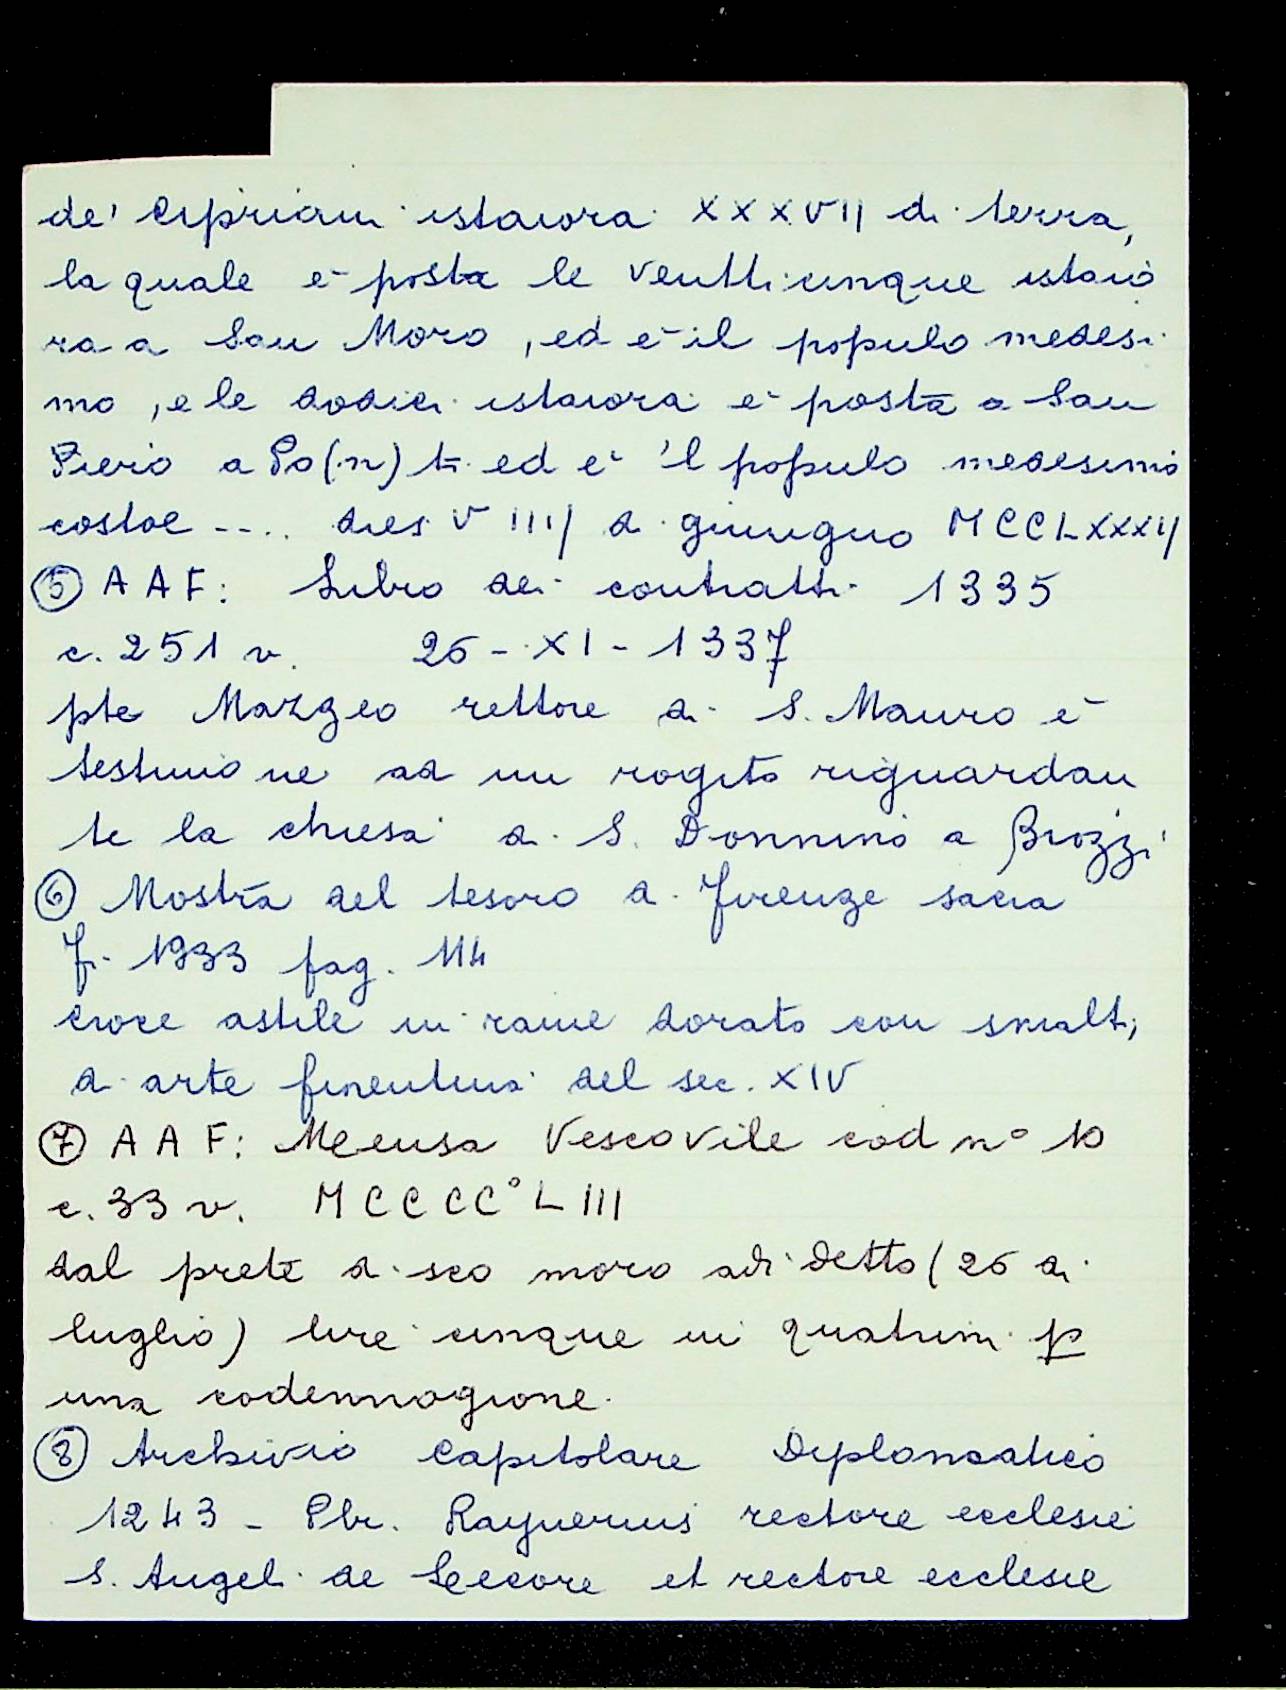 de' Cipriani istaiora XXXVII di terra,
la quale è posta le ventticinque istaio
ra a San Moro, ed è il populo medesi
mo, e le dodici istaiora è posta a San
Piero a Po(n)ti ed è 'l populo medesimo
costoe .... dies VIIII di giungno MCCLXXXII
⑤ AAF: Libro dei contratti 1335
c. 251 v. 26-XI-1337
pte Mazzeo rettore di S. Mauro è
testimone ad un rogito riguardan
te la chiesa di S. Donnino a Brozzi
⑥ Mostra del tesoro di Firenze sacra
Fi. 1933 pag. 114
croce astile in rame dorato con smalti,
di arte fiorentina del sec. XIV
⑦ AAF: Mensa Vescovile cod n° 10
c. 33 v. MCCCC°LIII
dal prete di sco moro adi detto (26 di
luglio) lire cinque in quatrini p
una codennagione.
⑧ Archivio Capitolare Diplomatico
1243 - Pbr. Raynerius rectore ecclesie
S. Angeli de Lecore et rectore ecclesie